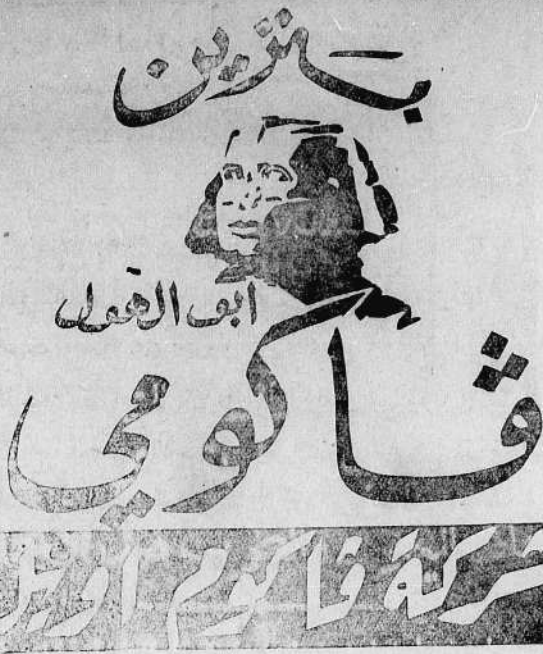 بـنزين
ابو الهول
ڤاكومي
شركة فاكوم أويل